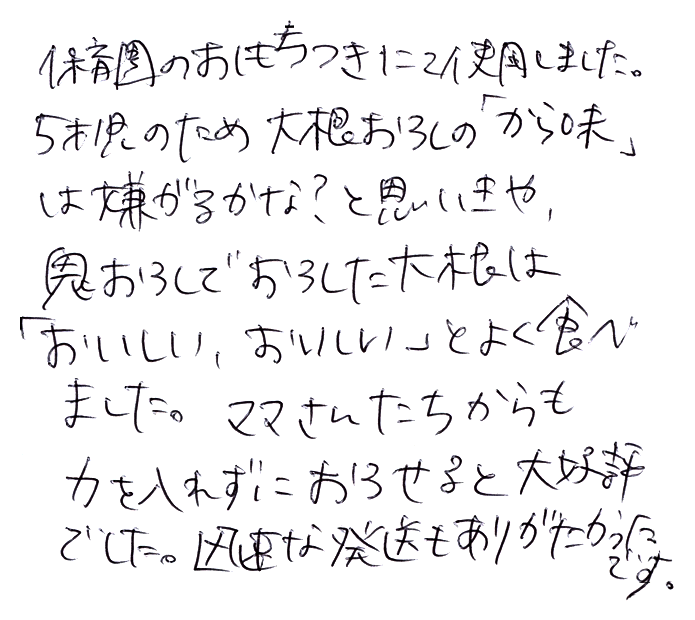 保育園のおもちつきに使用しました。
5才児のため大根おろしの「から味」
は嫌がるかな?と思いきや,
鬼おろしでおろした大根は
「おいしい,おいしい」とよく食べ
ました。ママさんたちからも
力を入れずにおろせると大好評
でした。迅速な発送もありがたかった
です。